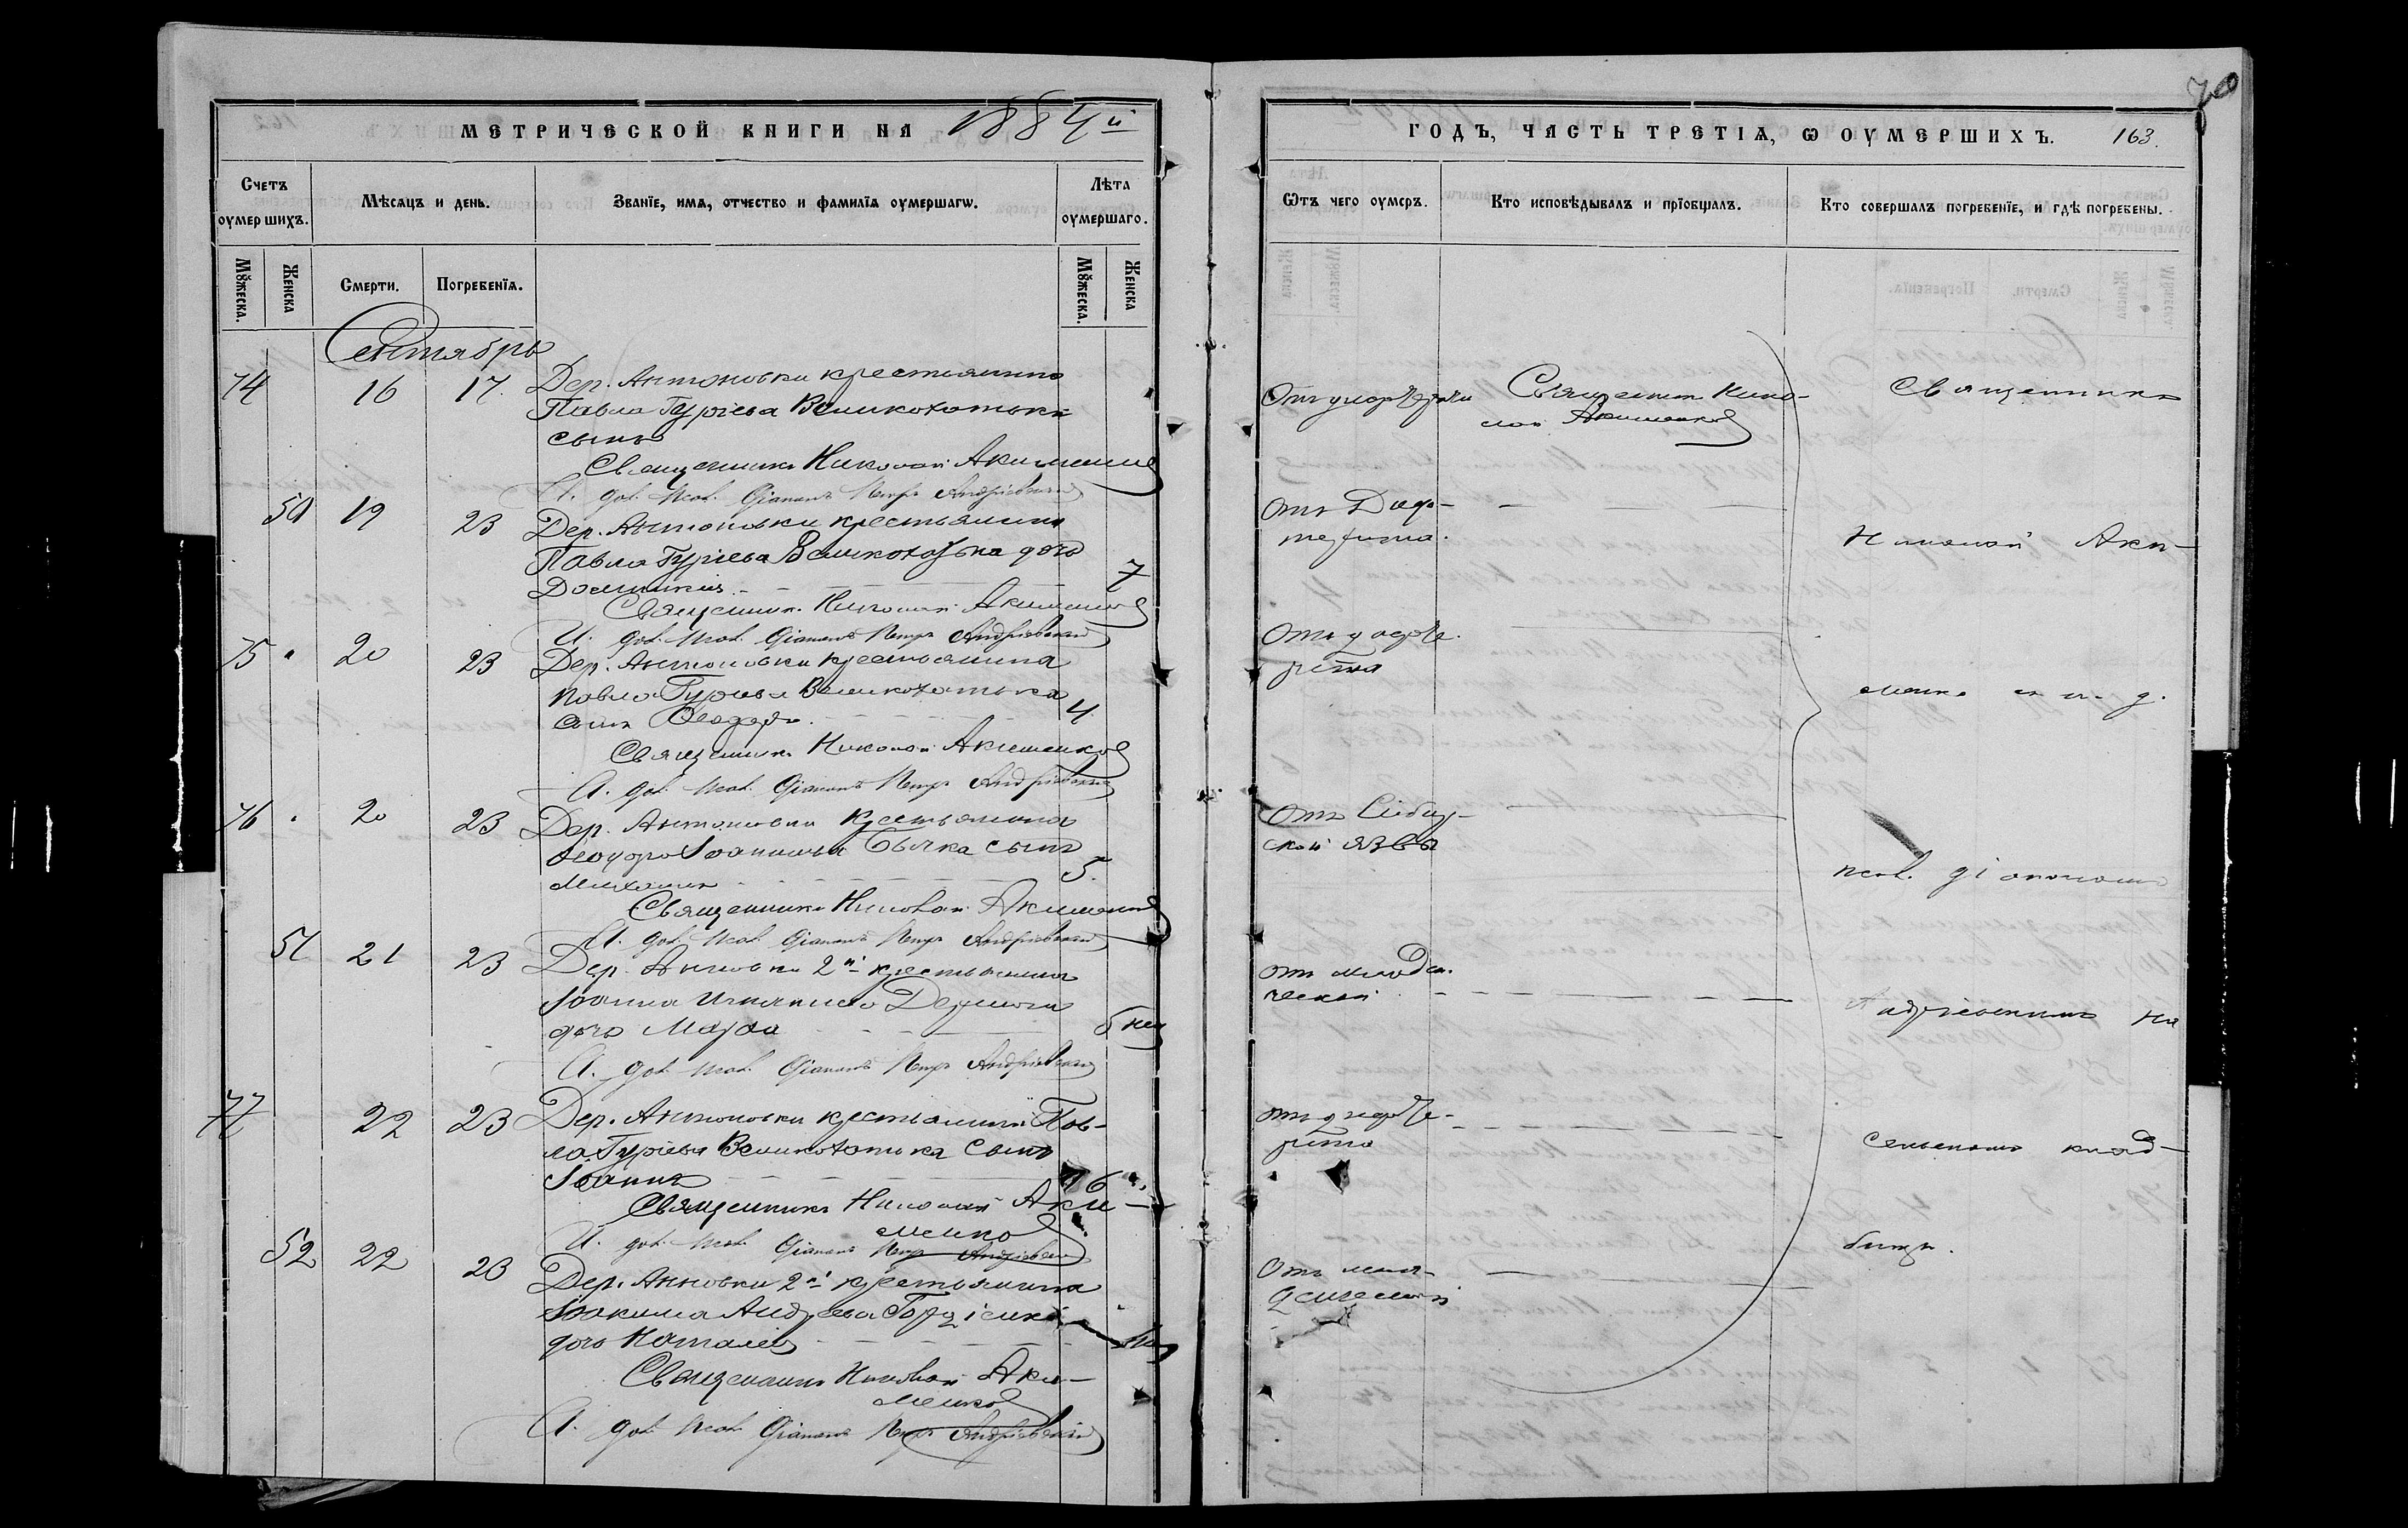 70
МЕТРИЧЕСКОЙ КНИГИ НА 1884й
ГОДЪ, ЧАСТЬ ТРЕТІЯ, Ѡ ОУМЕРШИХЪ. 163.
Счетъ оумершихъ.
Мѣсяцъ и день.
Званїе, имя, отчество и фамилїя оумершагѡ.
Лѣта оумершаго.
Ѿтъ чего оумеръ.
Кто исповѣдывалъ и прїобщалъ.
Кто совершалъ погребенїе, и гдѣ погребены.
Мꙋжеска.
Женска
Смерти.
Погребенїя.
Мꙋжеска.
Женска
Сентябрь
74 16 17. Дер. Антоновки крестьянина
Павла Гуріева Великохатька
сынъ
Священникъ Николай Акименко
И. дол. псал. Діаконъ Петръ Андріевскій
Священникъ Нико-
лай Акименко
Священникъ
50 19 23 Дер. Антоновки крестьянина
Павла Гуріева Великохатька дочь
Домникія 7
Священникъ Николай Акименко
И. дол. псал. Діаконъ Петръ Андріевскій
отъ Диф-
терита.
Николай Аки-
75 20 23 Дер. Антоновки крестьянина
Павла Гуріева Великохатька
сынъ Ѳеодоръ 4
Священникъ Николай Акименко
И. дол. псал. Діаконъ Петръ Андріевскій
отъ дифте-
рита
менко и. д.
76 20 23 Дер. Антоновки крестьянина
Ѳеодора Іоаннова Бычка сынъ
Михаилъ 5.
Священникъ Николай Акименко
И. дол. псал. Діаконъ Петръ Андріевскій
отъ Сибир-
ской язвы
псал. діакономъ
51 21 23 Дер. Анновки 2й крестьянина
Іоанна Игнатиева
дочь Марѳа 6 нед
И. дол. псал. Діаконъ Петръ Андріевскій
отъ младен-
ческой
Андріевскимъ на
77 22 23 Дер. Антоновки крестьянина Пав-
ла Гуріева Великохатька сынъ
Іоаннъ
Священникъ Николай Аки-
менко
И. дол. псал. Діаконъ Петръ Андріевскій
отъ дифте-
рита
сельскомъ клад-
52 22 23 Дер. Анновки 2й крестьянина
Іоакима Андреева
дочь Наталія
Священникъ Николай Аки-
менко
И. дол. псал. Діаконъ Петръ Андріевскій
отъ мла-
денческой
бищѣ.